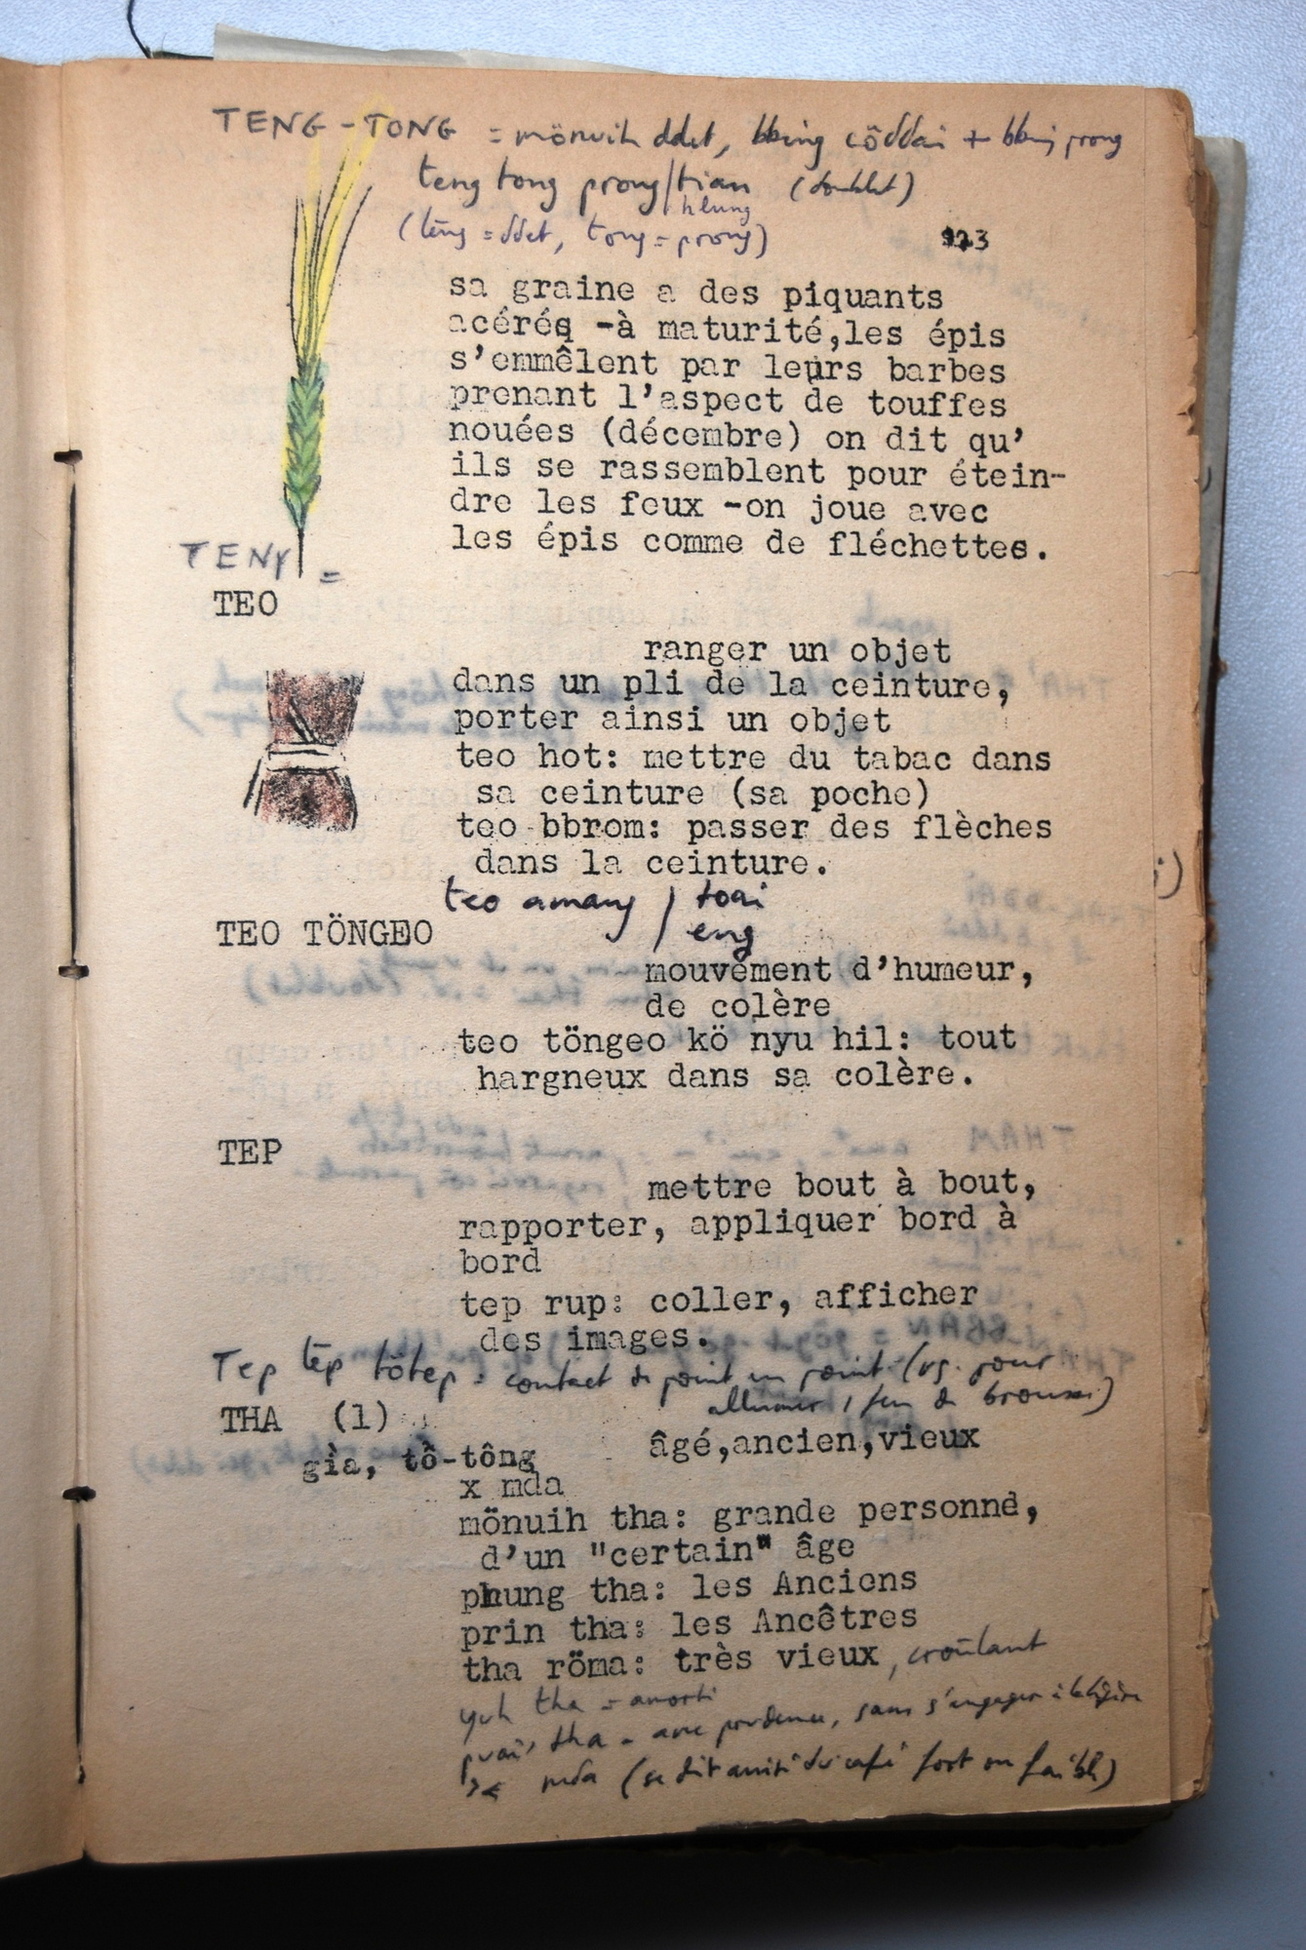 TENG - TONG = mönuih ddet, bbing cöddai + bbing prong
teng tong prong / tian (doublet)
hlung
(teng = ddet, tong = prong)
923
sa graine a des piquants
acérés -à maturité,les épis
s'emmêlent par leurs barbes
prenant l'aspect de touffes
nouées (décembre) on dit qu'
ils se rassemblent pour étein-
dre les feux -on joue avec
les épis comme de fléchettes.
TENG =
TEO
ranger un objet
dans un pli de la ceinture,
porter ainsi un objet
teo hot: mettre du tabac dans
sa ceinture (sa poche)
teo bbrom: passer des flèches
dans la ceinture.
teo amang / toai
/ eng
TEO TÖNGEO
mouvement d'humeur,
de colère
teo töngeo kö nyu hil: tout
hargneux dans sa colère.
TEP
mettre bout à bout,
rapporter, appliquer bord à
bord
tep rup: coller, afficher
des images.
Tep tep tötep = contact de point en point (vg. pour
allumer 1 feu de brousse)
THA (1)
âgé,ancien,vieux
già, tồ-tông
x mda
mönuih tha: grande personne,
d'un "certain" âge
phung tha: les Anciens
prin tha: les Ancêtres
tha röma: très vieux, croûlant
yuh tha = amorti
tha = avec prudence, sans s'engager à la légère
>< mda (se dit aussi du café fort ou faible)